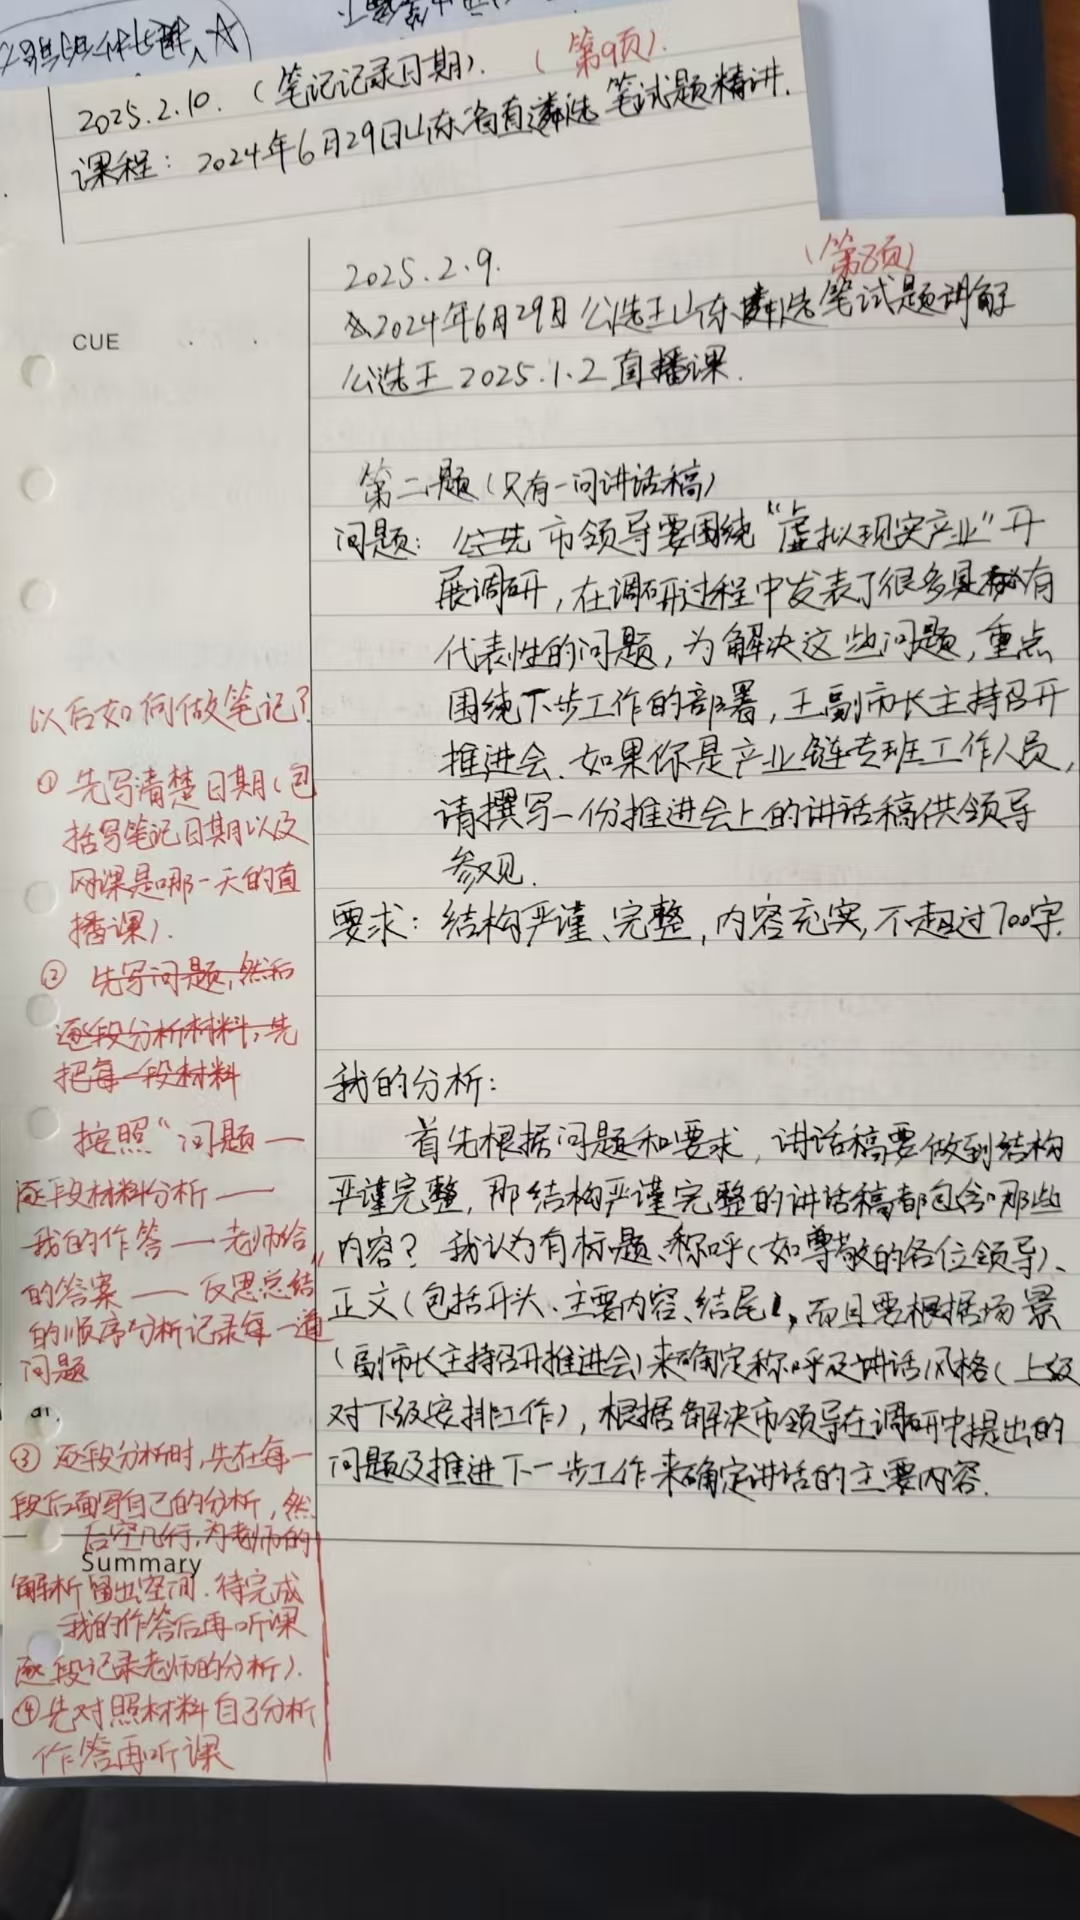 2025.2.10.（笔记记录日期）.（第9页）.
课程：2024年6月29日山东省直遴选笔试题精讲.
2025.2.9.（第8页）
2024年6月29日公选王山东遴选笔试题讲解
公选王2025.1.2直播课.
CUE
第二题（只有一问讲话稿）
问题：公选市领导要围绕“虚拟现实产业”开
展调研，在调研过程中发表了很多具有
代表性的问题，为解决这些问题，重点
围绕下步工作的部署，王副市长主持召开
推进会.如果你是产业链专班工作人员，
请撰写一份推进会上的讲话稿供领导
参见.
要求：结构严谨、完整，内容充实，不超过700字.
我的分析：
首先根据问题和要求，讲话稿要做到结构
严谨完整，那结构严谨完整的讲话稿都包含哪些
内容？我认为有标题、称呼（如尊敬的各位领导）、
正文（包括开头、主要内容、结尾），而且要根据场景
（副市长主持召开推进会）来确定称呼及讲话风格（上级
对下级安排工作），根据解决市领导在调研中提出的
问题及推进下一步工作来确定讲话的主要内容.
以后如何做笔记？
①先写清楚日期（包
括写笔记日期以及
网课是哪一天的直
播课）.
②先写问题，然后
逐段分析材料，先
把每一段材料
按照“问题—
逐段材料分析——
我的作答—老师给
的答案——反思总结”
的顺序分析记录每一道
问题
③逐段分析时，先在每一
段后面写自己的分析，然
后空几行，为老师的
Summary
解析留出空间.待完成
我的作答后再听课
逐段记录老师的分析）.
④先对照材料自己分析
作答再听课